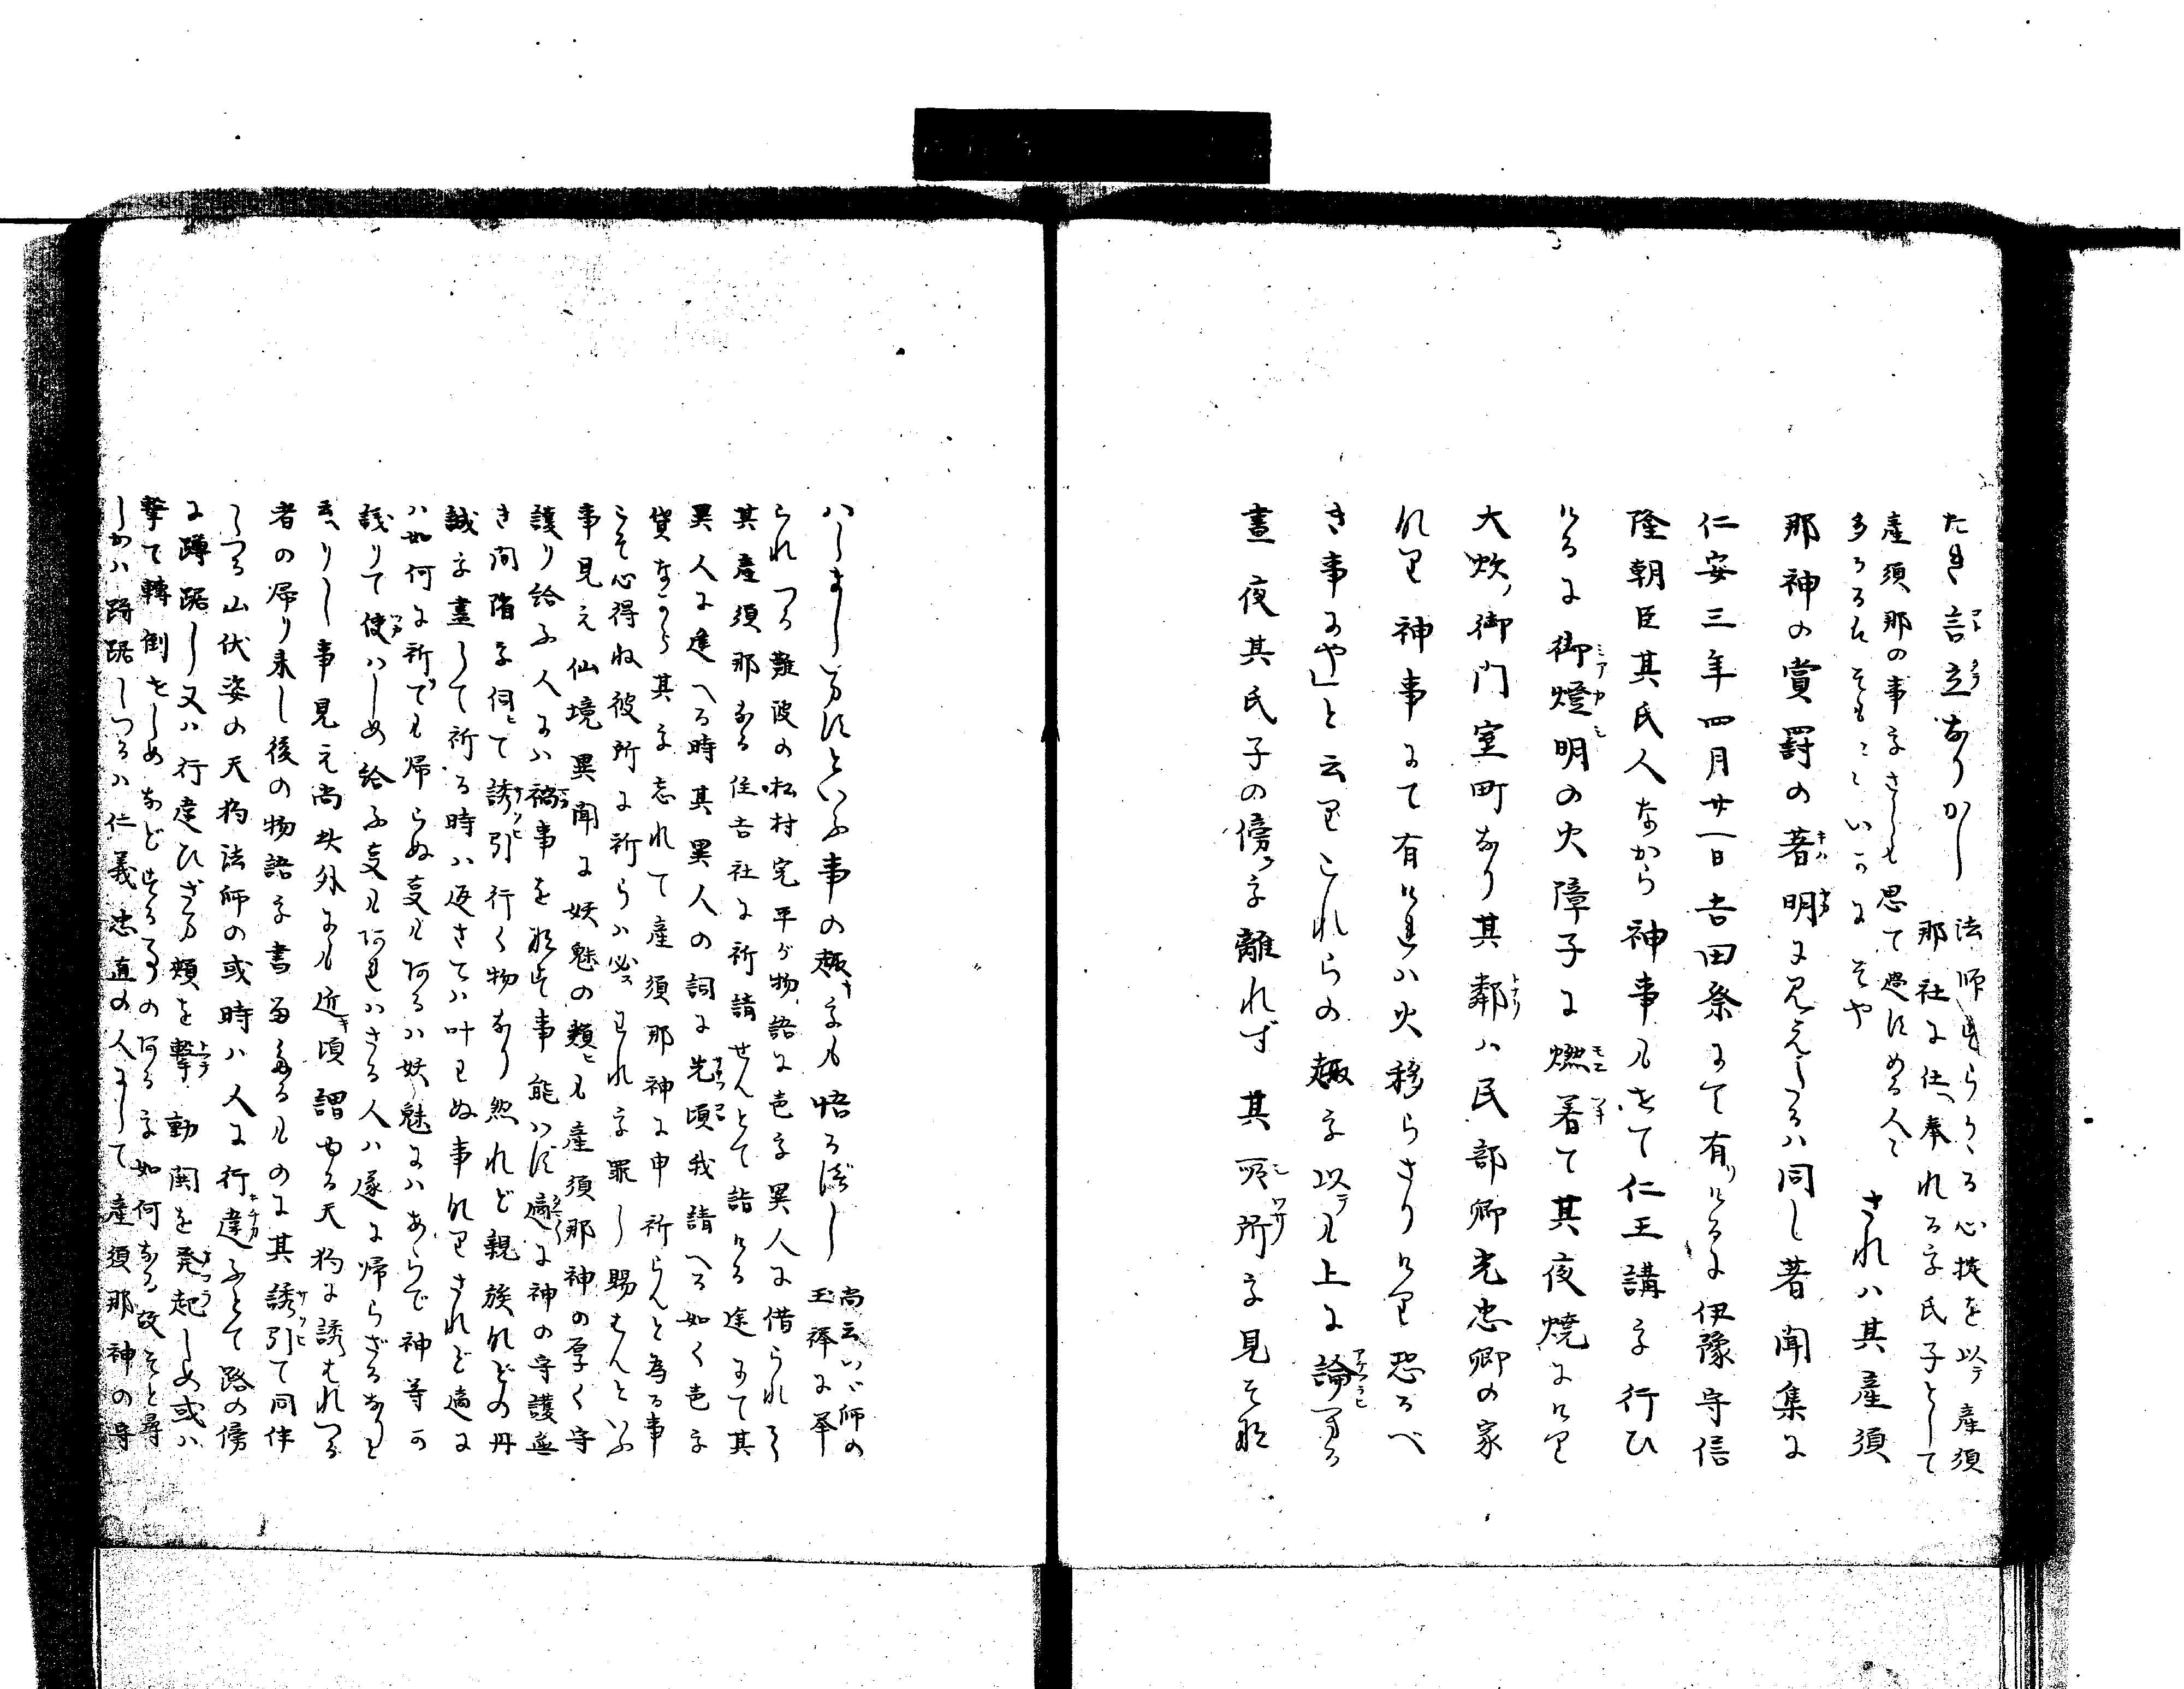 たき言立なりかし 法師すらかゝる心掟を以テ産須
那社に仕へ奉れる字氏子として
産須那の事をさしも思て過にめる人〻
多かるはそも〳〵いかにそや されハ其産須
那神の賞罰の著明に見えたるハ同し著聞集に
仁安三年四月廿一日吉田祭にて有けるに伊豫守信
隆朝臣其氏人なから神事もせて仁王講を行ひ
けるに御燈明の火障子に燃着て其夜焼にけり
大炊ノ御門室町なり其鄰ハ民部卿光忠卿の家
なり神事にて有けれハ火移らさりけり恐るべ
き事にや」と云りこれらの趣を以ても上に論へる
晝夜其氏子の傍を離れず其所を見そな
ハしましいますといふ事の趣をも悟るべし 尚云ハヾ師の
玉襷に挙
られつる難波の松村完平が物語に
其産須那なる住吉社に祈請せんとて詣ける途にて其
異人に逢へる時其異人の詞に先頃我請へる如く
貸なから其を忘れて産須那神に申祈らんと為る事
こそ心得ね彼所に祈らハ必われを罪し賜はんといふ
事見え仙境異聞に妖魅の類も産須那神の厚く守
護り給ふ人にハ禍事を為す事能ハず適に神の守護無
き間隙を伺て誘引行く物なり然れど親族などの丹
誠を盡して祈る時ハ返さてハ叶はぬ事なりされど適に
ハ如何に祈ても帰らぬ事も有るハ妖魅にハあらで神等の
議りて使ハしめ給ふ事も有れハさる人ハ遂に帰らざるなりと
云りし事見え尚此外にも近き頃謂ゆる天狗に誘はれつる
者の帰り来し後の物語を書るものに其誘引て同伴
しつる山伏姿の天狗法師の或時ハ人に行違ふとて路の傍
に蹲踞し又ハ行違ひざる類を撃動闘を発起しめ或ハ
撃て轉倒せしめなどするの有るを如何なる故そと尋
しかハ蹲踞しつるハ仁義忠直の人にして産須那神の守